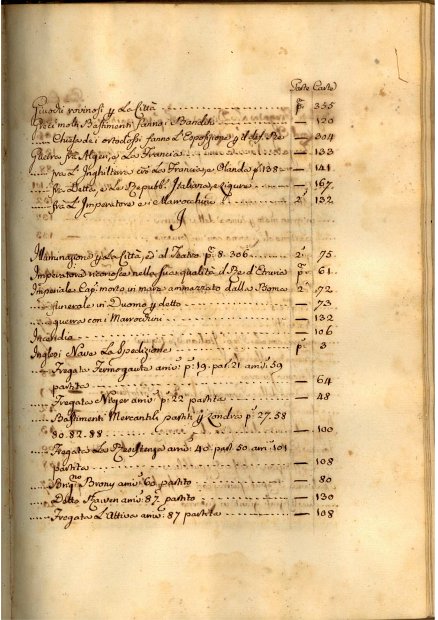 Parte Carte
Giuochi rovinosi p la Città p.ª 355
Greci molti Bastimenti fanno i Banditi — 120
Chiesa de i ortodossi fanno l'Esposizione p il def. Re — 304
Guerra fra Algeri, e la Francia — 133
fra l'Inghilterra c.ª la Francia, e Olanda p.ª 138 — 141
fra Detta, e le Repubb. Italiana, e Ligure — 167
fra l'Imperatore e i Marrocchini 2.ª 132
I
Illuminazione p la Città, ed al Teatro p.ª 8. 306 2.ª 75
Imperatore riconosce nella sua qualità il Re d'Etruria p.ª 61
Imperiale Cap. morto in mare ammazzato dalla Boma 2.ª 72
funerale in Duomo p detto — 73
guerra con i Marrocchini — 132
Incendia — 106
Inglesi Nave la Spedizione p.ª 3
Fregata Termogauta ami. p.ª 19. par. 21 ami. 59
partita — 64
Fregata Niger ami. p.ª 22 partita — 48
Bastimenti Mercantili, partiti p Londra p.ª 27. 58
80. 82. 88 — 100
Fregata la Resistenza ami. 40 part. 50 ami. 101
partita — 108
Brig.no Brony ami. 60 partito — 80
Detto Raven ami. 87 partito — 130
Fregata l'Attiva ami. 87 partita — 108